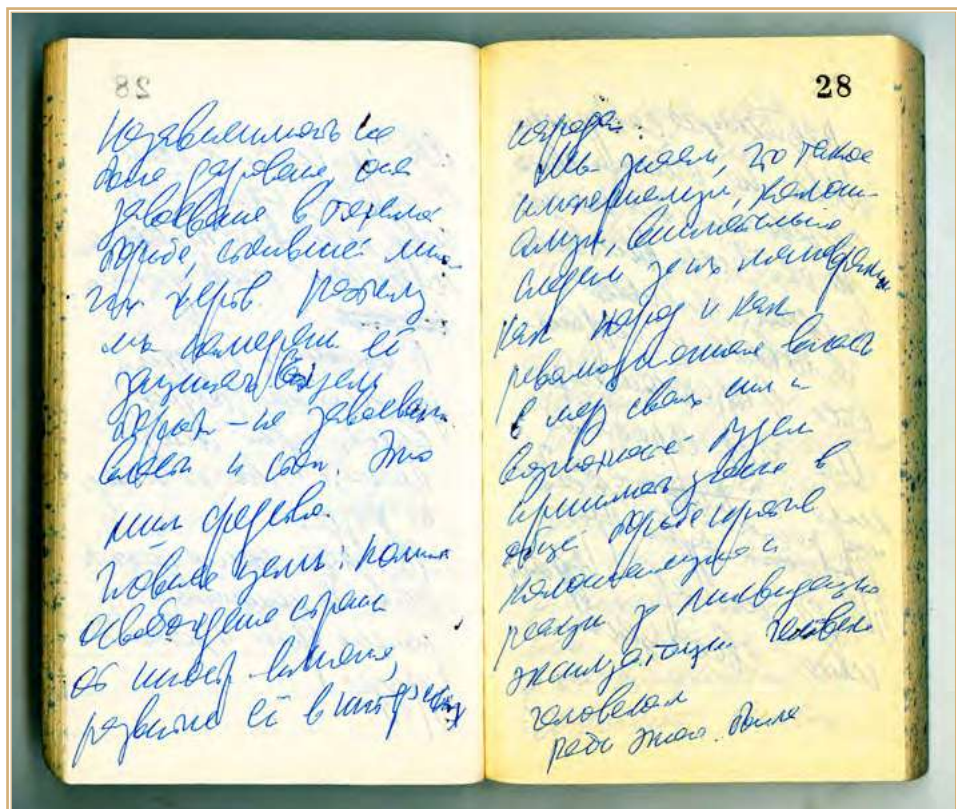 28
Независимость не
была дарована, она
завоевана в тяжелой
борьбе, стоившей мно-
гих жертв. Поэтому
мы намерены её
защищать. Цель
борьбы – не завоевание
власти и
Это
лишь средство.
Главная цель: полное
освобождение страны
от иностр. влияния,
развитие её в интересах
28
народа.
Мы знаем, что такое
империализм, колони-
ализм, внимательно
следим за их маневрами.
Как народ и как
революционная власть
в меру своих сил и
возможностей будем
принимать участие в
общей борьбе против
колониализма и
реакции за ликвидацию
эксплуатации человека
человеком